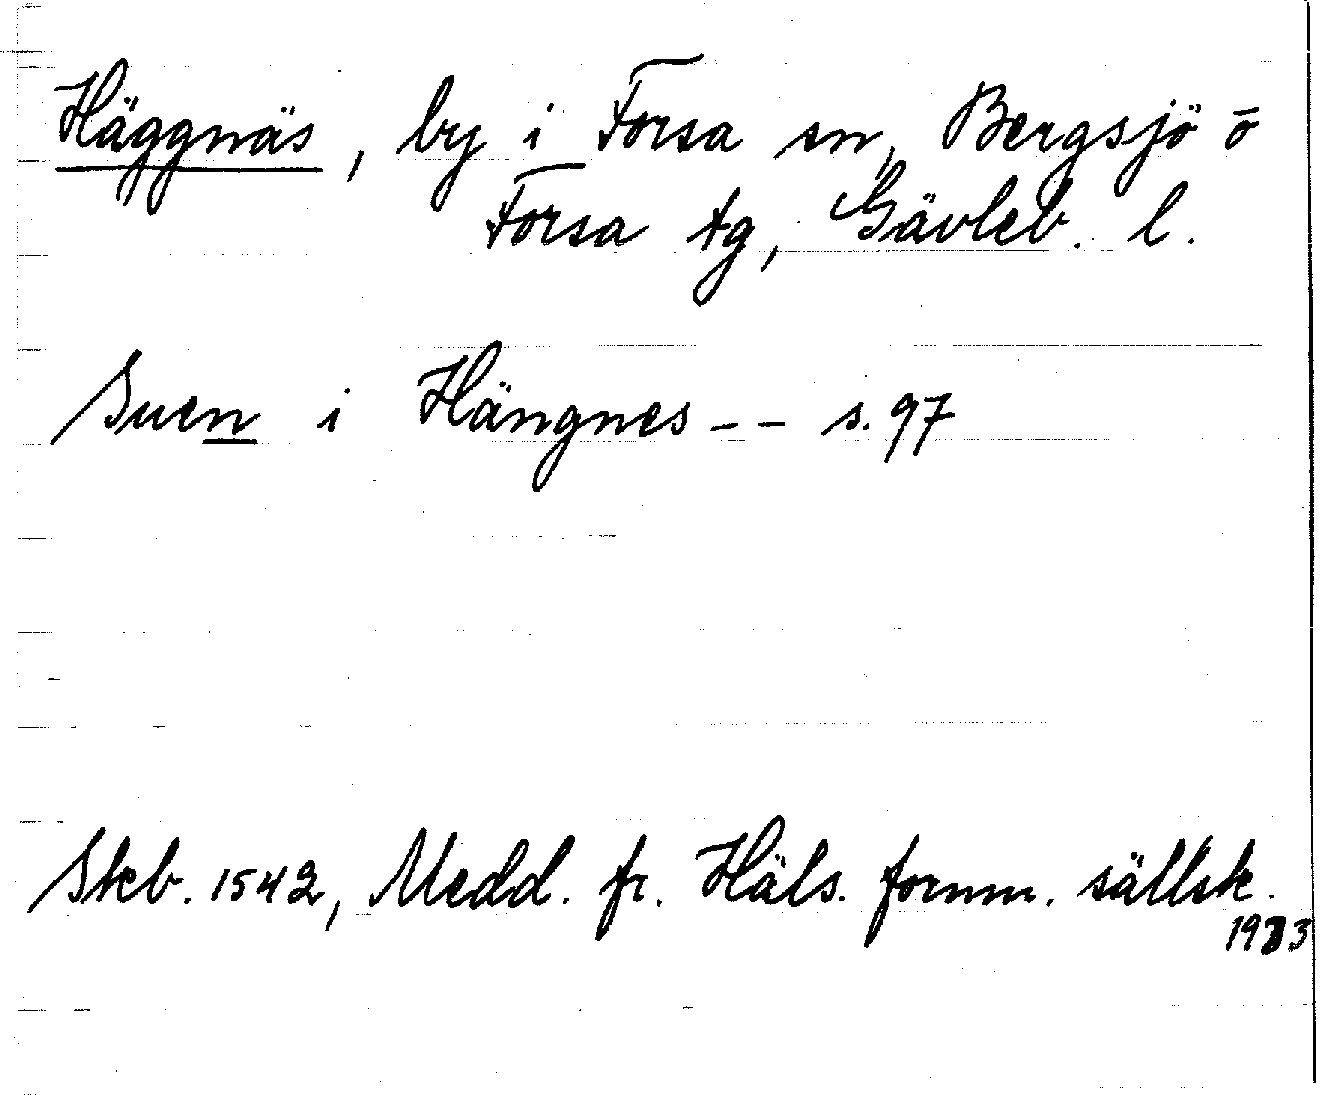 Häggnäs, by i Forsa sn, Bergsjö o
Forsa tg, Gävleb. l.
Suen i Hängnes -- s. 97
Skb. 1542, Medd. fr. Häls. fornm. sällsk.